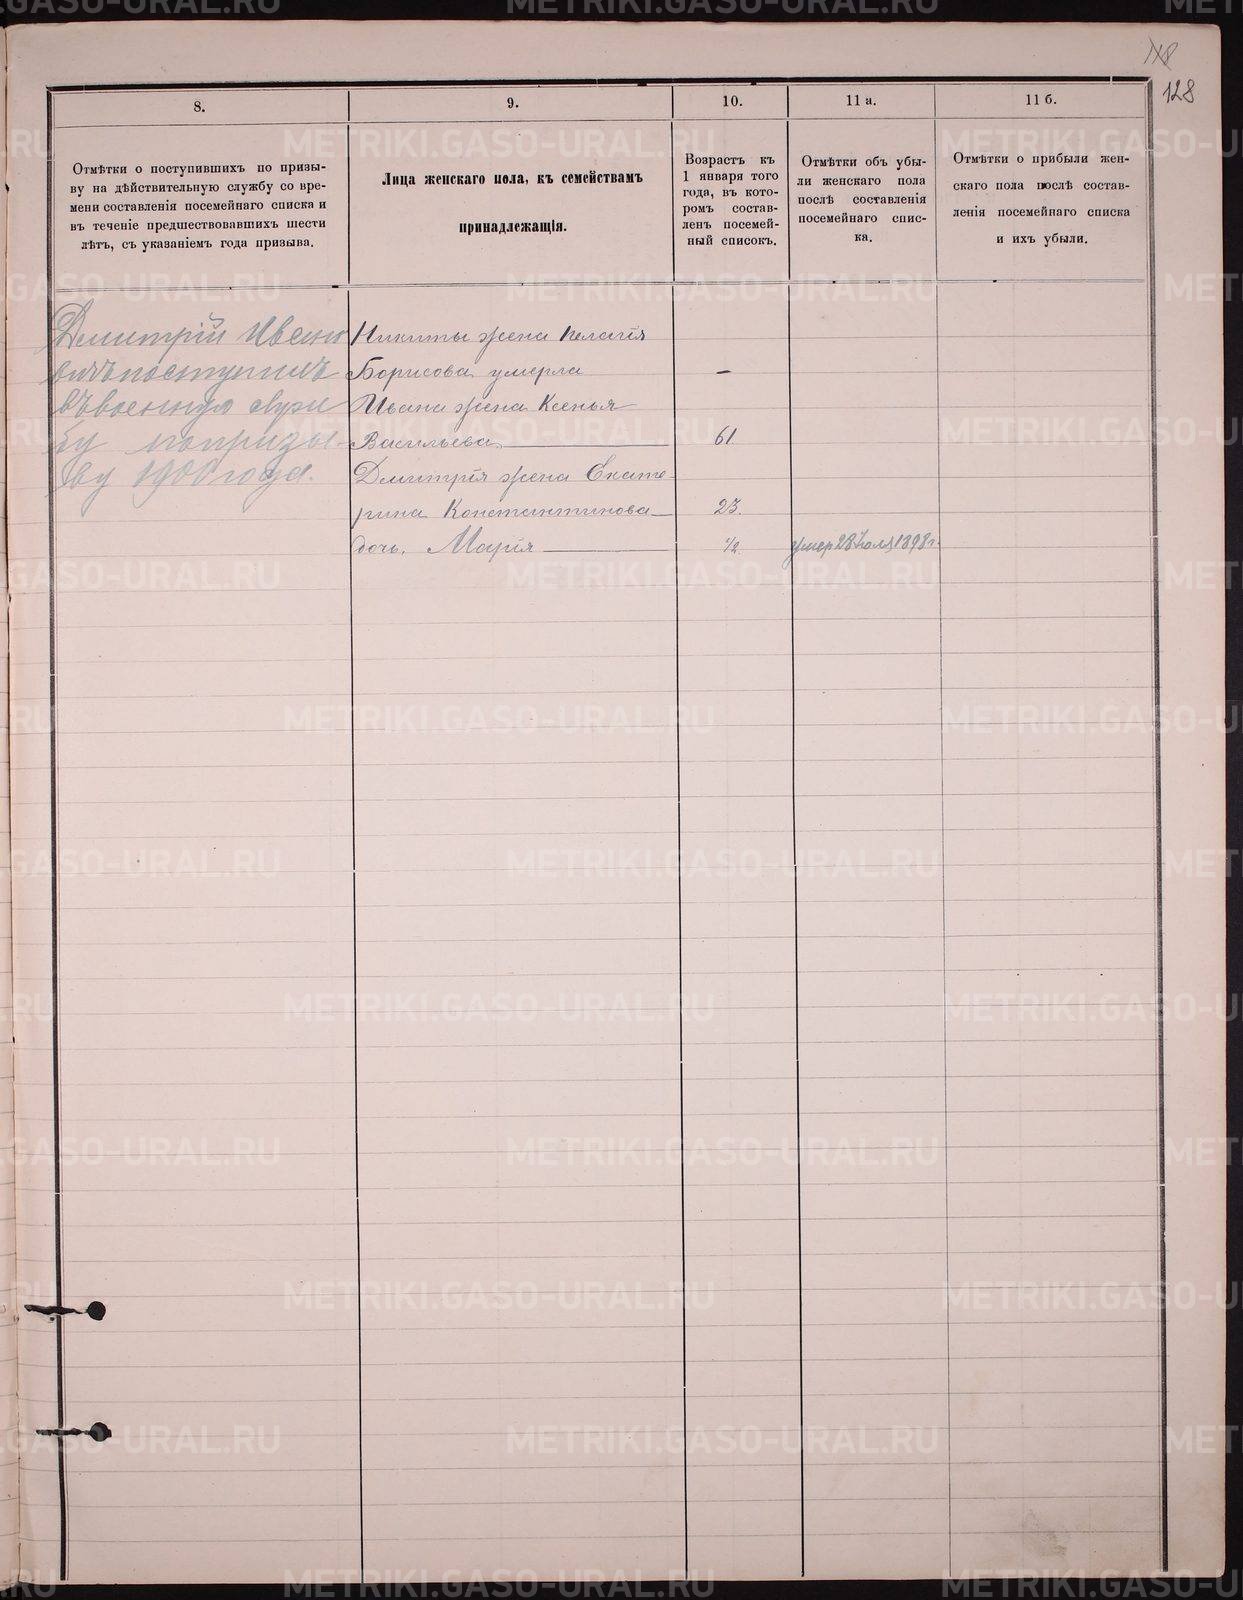 118
128
8.
9.
10.
11 а.
11 б.
Отмѣтки о поступившихъ по призы-
ву на дѣйствительную службу со вре-
мени составленія посемейнаго списка и
въ теченіе предшествовавшихъ шести
лѣтъ, съ указаніемъ года призыва.
Лица женскаго пола, къ семействамъ
принадлежащія.
Возрастъ къ
1 января того
года, въ кото-
ромъ состав-
ленъ посемей-
ный списокъ.
Отмѣтки объ убы-
ли женскаго пола
послѣ составленія
посемейнаго спис-
ка.
Отмѣтки о прибыли жен-
скаго пола послѣ состав-
ленія посемейнаго списка
и ихъ убыли.
Дмитрій Ивано
вичъ поступилъ
въ военную служ
бу по призы-
ву 1900 года.
Никиты жена Пелагія
Борисова умерла –
Ивана жена Ксенья
Васильева 61
Дмитрія жена Екате-
рина Константинова 23.
дочь Марія 1/2 умер 28 Іюля 1898 г.
METRIKI.GASO-URAL.RU